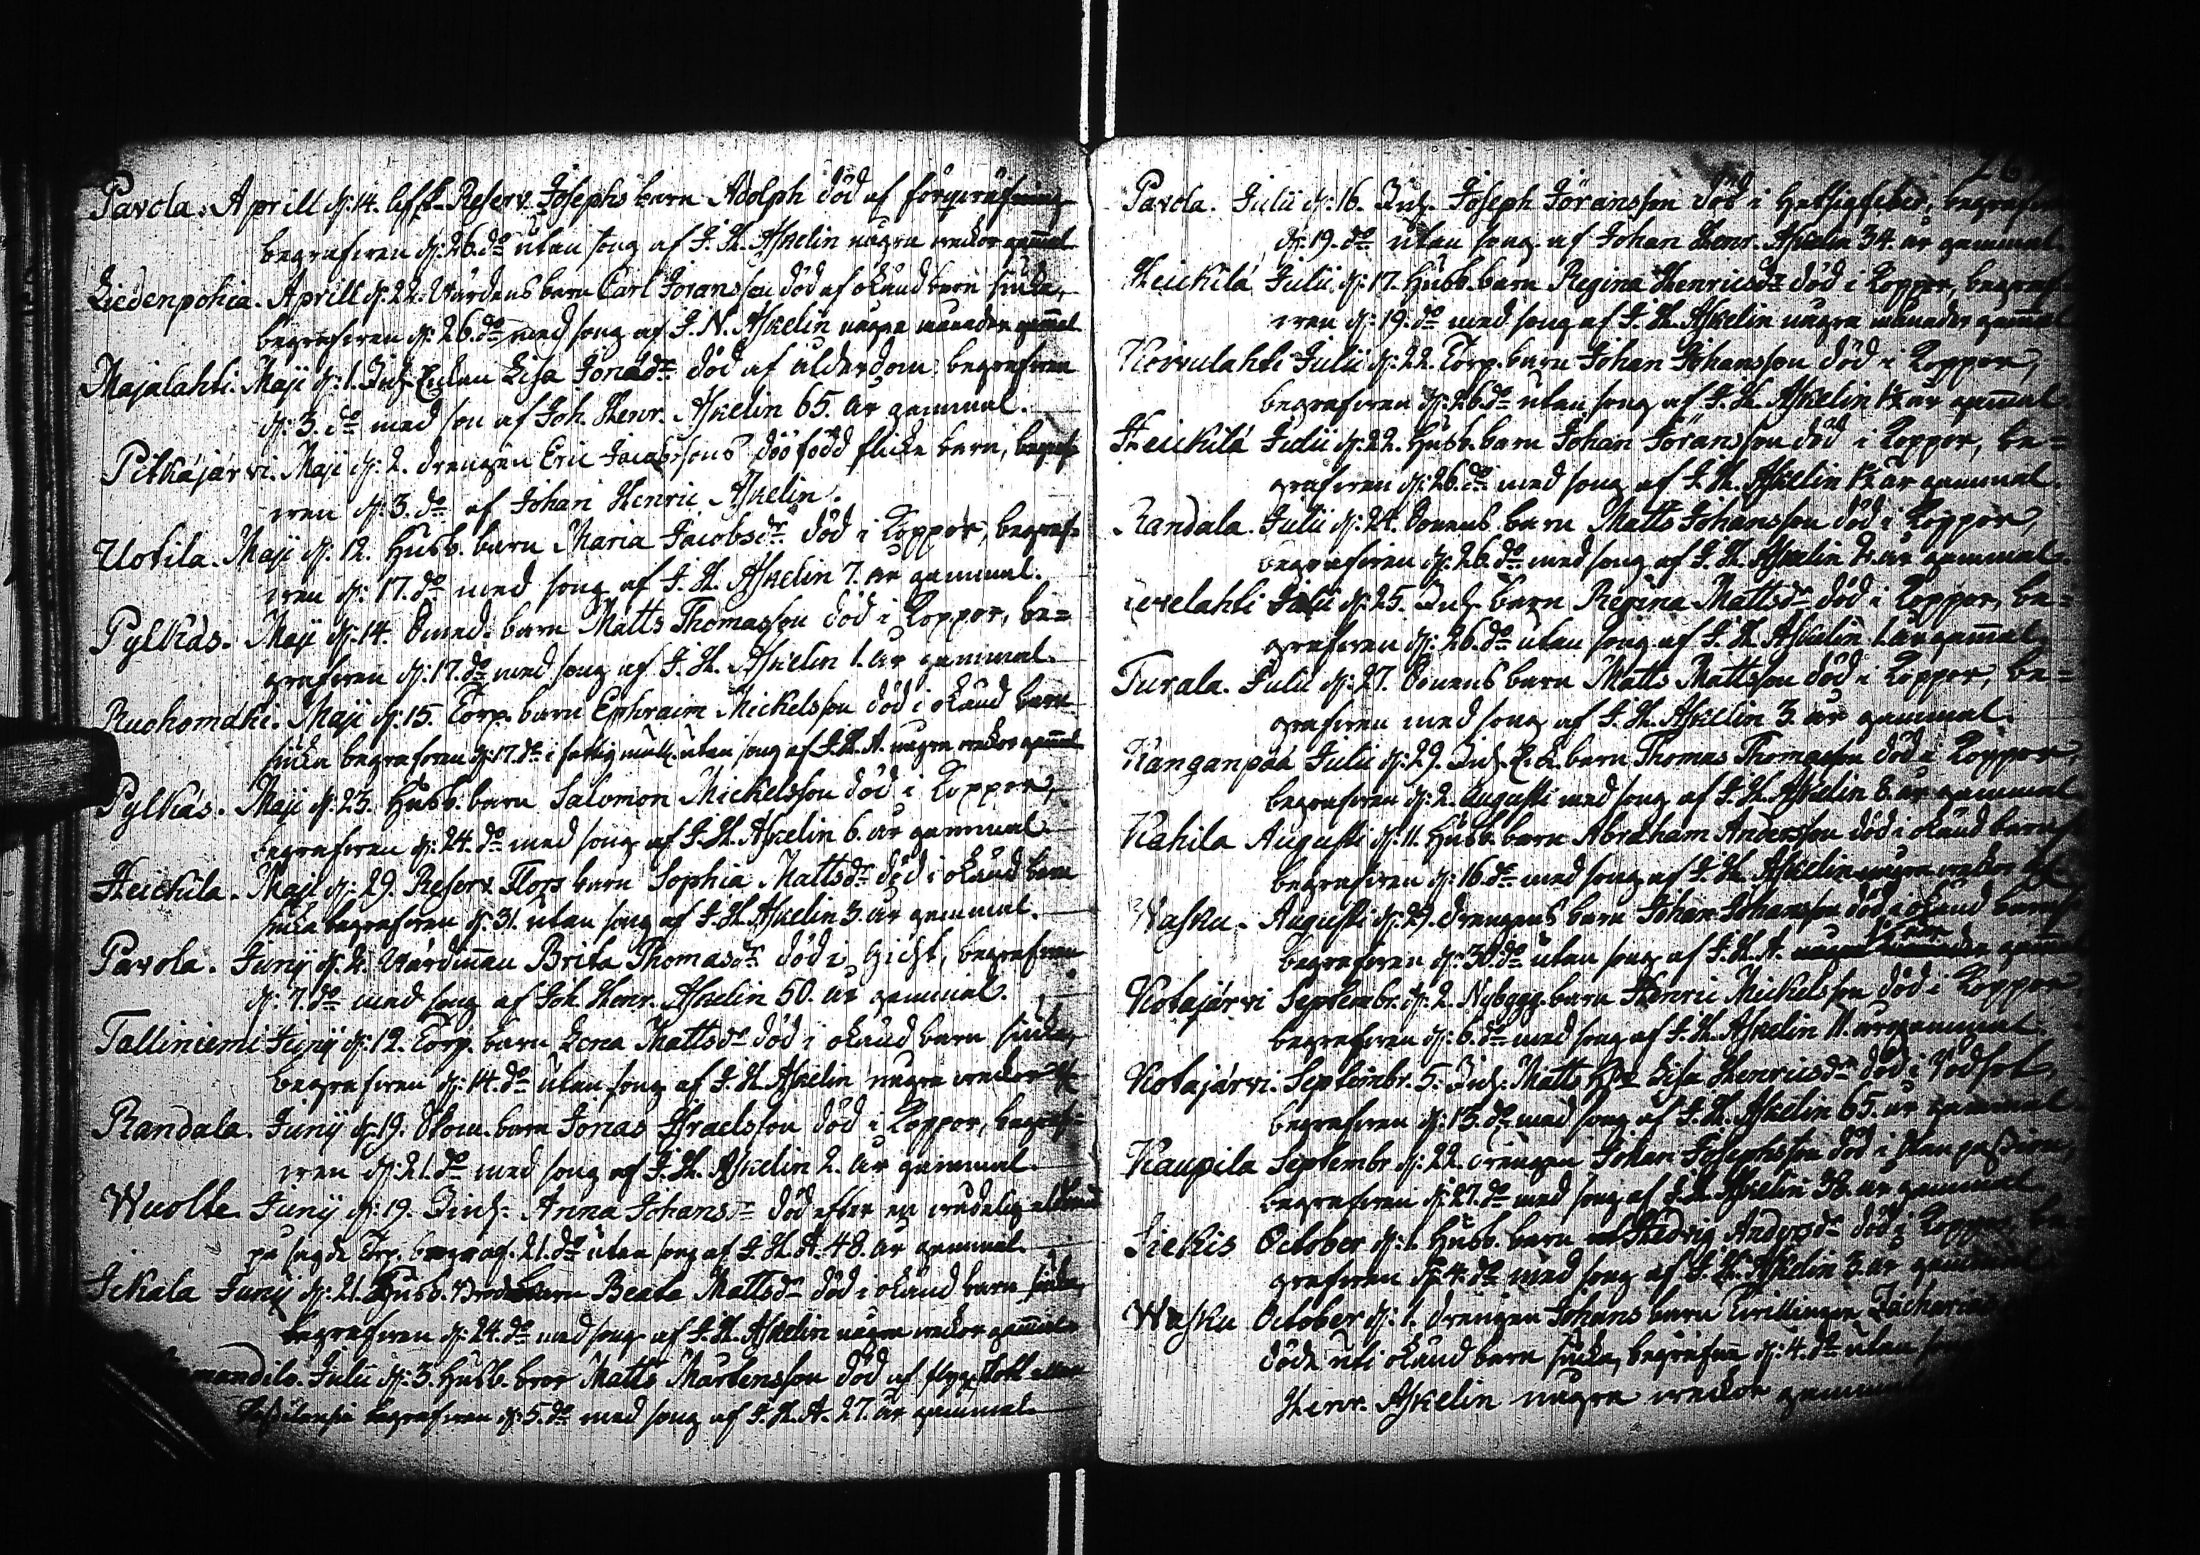 Pavola. Aprill d: 14. Reserv. Josephs barn Adolph död af
begrafwen d: 26. do utan song af J. H. Askelin några weckor gamal
Liedenpohia. Aprill d: 22. Wärdens barn Carl Joransson död af okänd barn siuka,
begrafwen d: 26. do med song af J. H. Askelin några månader gamal
Majalahti. Maji d: 1. Inh. Enkan Lisa Jonaedr död af ålderdom begrafwen
d: 3. do med son af Joh. Henr. Askelin 65. år gammal.
Pitkäjärvi. Maji d: 2. drengen Eric Jacobssons död född flicke barn, begraf-
wen d: 3. do af Johan Henric Askelin.
Uotila. Maji d: 12. Husb. barn Maria Jacobsdr död i Koppor, begraf-
wen d: 17. do med song af J. H. Askelin 7. år gammal.
Pylkäs. Maji d: 14. barn Matts Thomasson död i Koppor, be=
grafwen d: 17. do med song af J. H. Askelin 1. år gammal.
Ruohomäki. Maji d: 15. Torp. barn Ephraim Mickelsson död i okänd barn
siuka begrafwen d: 17. do i fattig mull utan song af J. H. A. några weckor gamal
Pylkäs. Maji d: 23. Husb. barn Salomon Mickelsson död i Koppor,
begrafwen d: 24. do med song af J. H. Askelin 6. år gammal.
Heickilä. Maji d: 29. Reserv. Flors barn Sophia Mattsdr död i okänd barn
siuka begrafwen d: 31. utan song af J. H. Askelin 3. år gammal.
Pavola. Junij d: 2. Brita Thomasdr död i Gickt, begrafwen
d: 7. do med song af Joh. Henr. Askelin 50. år gammal.
Talliniemi Junij d: 12. Torp. barn Lena Mattsdr död i okänd barn siuka,
begrafwen d: 14. do utan song af J. H. Askelin några weckor
Randala. Junij d: 19. barn Jonas Israelsson död i Koppor, begraf-
wen d: 21. do med song af J. H. Askelin 2. år gammal.
Wuolle Junij d: 19. Inh. Anna Johansdr död efter en
på sagde Torp. begraf. 21. do utan song af J. H. A. 48. år gammal.
Ickala Junij d: 21. Husb. Brod. barn Beata Mattsdr död i okänd barn siuka,
begrafwen d: 24. do med song af J. H. Askelin några weckor gammal
Julii d: 3. Husb. bror Matts Martensson död af
begrafwen d: 5. do med song af J. H. A. 27. år gammal
Pavola. Julii d: 16. Inh. Joseph Joransson död i Hetsigfeber, begrafwen
d: 19. do utan song af Johan Henr. Askelin 34. år gammal.
Heickilä Julii d: 17. Husb. barn Regina Henricsdr död i Koppor, begraf-
wen d: 19. do med song af J. H. Askelin några månader gammal
Koivulahti Julii d: 22. Torp. barn Johan Johansson död i Koppor,
begrafwen d: 26. do utan song af J. H. Askelin 1½ år gammal.
Heickilä Julii d: 22. Husb. barn Johan Joransson död i Koppor, be=
grafwen d: 26. do med song af J. H. Askelin 1½ år gammal.
Randala. Julii d: 24. Bonens barn Matts Johansson död i Koppor,
begrafwen d: 26. do med song af J. H. Askelin ½ år gammal.
Julii d: 25. Inh. barn Regina Mattsdr död i Koppor, be=
grafwen d: 26. do utan song af J. H. Askelin 1. år gamal
Turala. Julii d: 27. Bonens barn Matts Mattsson död i Koppor, be=
grafwen med song af J. H. Askelin 3. år gammal.
Kanganpää Julii d: 29. Inh. barn Thomas Thomasson död i Koppor,
begrafwen d: 2. Augusti med song af J. H. Askelin 8. år gammal
Kahila Augusti d: 11. Husb. barn Abraham Andersson död i okänd barn
begrafwen d: 16. do med song af J. H. Askelin några weckor
Wasku. Augusti d: 29. drengens barn Johan Johansson död i okänd barn
begrafwen d: 30. do utan song af J. H. A.
Kotajärvi Septembr. d: 2. Nybygg. barn Henric Mickelsson död i Koppor
begrafwen d: 6. do med song af J. H. Askelin 11. år gammal.
Kotajärvi. Septembr. 5. Inh. Matts Lisa Henricsdr död i Rödsot
begrafwen d: 13. do med song af J. H. Askelin 65. år gammal
Kaupila Septembr d: 22. drengen Johan Josephsson död i
begrafwen d: 27. do med song af J. H. Askelin 38. år gammal
October d: 1. Husb. barn Hedvig Andersdr död i Koppor, be-
grafwen d: 4. do med song af J. H. Askelin 3. år gammal
Wasku October d: 1. drengen Johans barn Twillingar Zacharias
döde uti okänd barn siuka, begrafne d: 4. do utan song
Henr. Askelin några weckor gammal